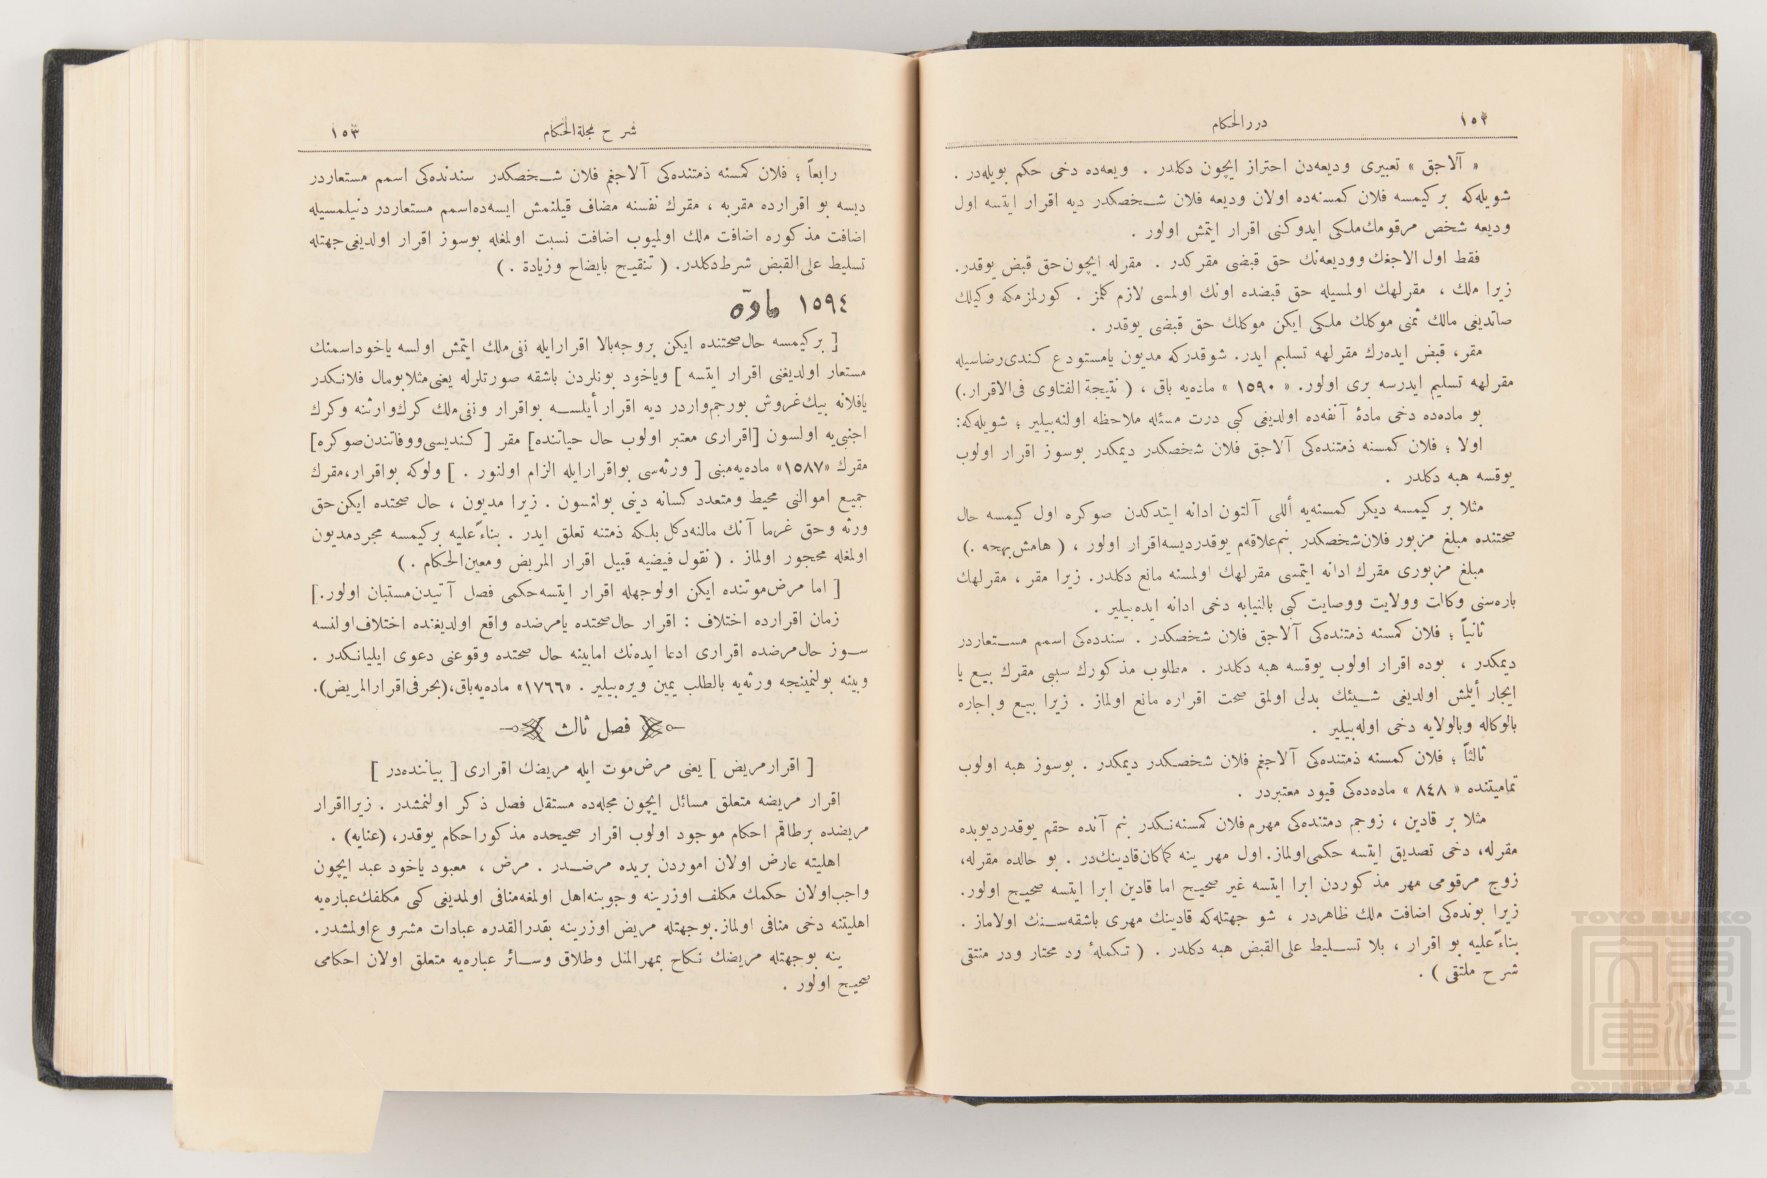 ١٥٢
دررالحكام
« آلاجق » تعبیری ودیعه‌دن احتراز ایچون دكلدر . ویعه‌ده دخی حكم بویله‌در .
شویله‌كه بر كیمسه فلان كمسنه‌ده اولان ودیعه فلان شـخصكدر دیه اقرار ایتسه اول
ودیعه شخص مرقومك‌ملكی ایدوكنی اقرار ایتمش اولور .
فقط اول الاجغك وودیعه‌نك حق قبضی مقر كدر . مقرله ایچون‌حق قبض یوقدر.
زیرا ملك ، مقرلهك اولمسیله حق قبضده اونك اولمسی لازم كلمز . كورلمزمكه وكیلك
صاتدیغی مالك ثمنی موكلك ملكی ایكن موكلك حق قبضی یوقدر .
مقر، قبض ایده‌رك مقرلهه تسلیم ایدر. شوقدركه مدیون یامستودع كندی‌رضاسیله
مقرلهه تسلیم ایدرسه بری اولور. « ١٥٩٠ » ماده‌یه باق ، ( نتیجة الفتاوی فی‌الاقرار.)
بو ماده‌ده دخی ماده آنفه‌ده اولدیغی كبی درت مسئله ملاحظه اولنه‌بیلیر ؛ شویله‌كه:
اولا ؛ فلان كمسنه ذمتنده‌كی آلاجق فلان شخصكدر دیمكدر بوسوز اقرار اولوب
یوقسه هبه دكلدر .
مثلا بر كیمسه دیكر كمسنه‌یه أللی آلتون ادانه ایتدكدن صوكره اول كیمسه حال
صحتنده مبلغ مزبور فلان‌شخصكدر بنم‌علاقه‌م یوقدردیسه‌اقرار اولور ، ( هامش‌بهجه .)
مبلغ مزبوری مقرك ادانه ایتمسی مقرلهك اولمسنه مانع دكلدر. زیرا مقر ، مقرلهك
پاره‌سنی وكالت وولایت ووصایت كبی بالنیابه دخی ادانه ایده‌بیلیر .
ثانیاً ؛ فلان كمسنه ذمتنده‌كی آلاجق فلان شخصكدر . سندده‌كی اسمم مسـتعاردر
دیمكدر ، بوده اقرار اولوب یوقسه هبه دكلدر . مطلوب مذكورك سببی مقرك بیع یا
ایجار أیلمش اولدیغی شـیئك بدلی اولمق صحت اقراره مانع اولماز . زیرا بیع واجاره
بالوكاله وبالولایه دخی اوله‌بیلیر .
ثالثاً ؛ فلان كمسنه ذمتنده‌كی آلاجغم فلان شخصكدر دیمكدر . بوسوز هبه اولوب
تمامیتنده « ٨٤٨ » ماده‌ده‌كی قیود معتبردر .
مثلا بر قادین ، زوجم دمتنده‌كی مهرم فلان كمسنه‌نكدر بنم آنده حقم یوقدردیوبده
مقرله، دخی تصدیق ایتسه حكمی‌اولماز. اول مهر ینه كماكان‌قادینك‌در . بو حالده مقرله،
زوج مرقومی مهر مذكوردن ابرا ایتسه غیر صحیح اما قادین ابرا ایتسه صحیح اولور.
زیرا بونده‌كی اضافت ملك ظاهردر ، شو جهتله‌كه قادینك مهری باشقه‌سـنك اولاماز .
بناءً‌علیه بو اقرار ، بلا تسـلیط علی‌القبض هبه دكلدر . ( تـكملهٔ رد محتار ودر منتقی
شرح ملتقی ) .
شرح مجلةالحكام
١٥٣
رابعاً ؛ فلان كمسنه ذمتنده‌كی آلاجغم فلان شـخصكدر سندنده‌كی اسمم مستعاردر
دیسه بو اقرارده مقربه ، مقرك نفسنه مضاف قیلنمش ایسه‌ده‌اسمم مستعاردر دنیلمسیله
اضافت مذكوره اضافت ملك اولمیوب اضافت نسبت اولمغله بوسوز اقرار اولدیغی‌جهتله
تسلیط علی‌القبض شرط‌دكلدر. ( تنقیح بایضاح وزیادة . )
١٥٩٤ ماده
[ بركیمسه حال‌صحتنده ایكن بروجه‌بالا اقرارایله نفی‌ملك ایتمش اولسه یاخوداسمنك
مستعار اولدیغنی اقرار ایتسه ] ویاخود بونلردن باشقه صورتلرله یعنی‌مثلابومال فلانكدر
یافلانه بیك‌غروش بورجم‌واردر دیه اقرار أیلسـه بواقرار ونفی‌ملك كرك‌وارثنه وكرك
اجنبی‌یه اولسون [اقراری معتبر اولوب حال حیاتنده] مقر [ كندیسی‌ووفاتندن‌صوكره]
مقرك «١٥٨٧» ماده‌یه‌مبنی [ ورثه‌سی بواقرارایله الزام اولنور . ] ولوكه بواقرار،مقرك
جمیع اموالنی محیط ومتعدد كسانه دینی بولنسون . زیرا مدیون ، حال صحتده ایكن‌حق
ورثه وحق غرما آنك مالنه‌دكل بلـكه ذمتنه تعلق ایدر . بناءً‌علیه بركیمسه مجردمدیون
اولمغله محجور اولماز . ( نقول فیضیه قبیل اقرار المریض ومعین‌الحكام . )
[ اما مرض‌موتنده ایكن اولوجهله اقرار ایتسه‌حكمی فصل آتیدن‌مستبان اولور.]
زمان اقرارده اختلاف : اقرار حال‌صحتده یامرضده واقع اولدیغنده اختلاف‌اولنسه
سـوز حال‌مرضده اقراری ادعا ایده‌نك امابینه حال صحتده وقوعنی دعوی ایلیانـكدر .
وبینه بولنمینجه ورثه‌یه بالطلب یمین ویره‌بیلیر . «١٧٦٦» ماده‌یه‌باق،(بحرفی‌اقرارالمریض).
فصل ثالث
[ اقرارمریض ] یعنی مرض‌موت ایله مریضك اقراری [ بیاننده‌در ]
اقرار مریضه متعلق مسائل ایچون مجله‌ده مستقل فصل ذكر اولنمشدر . زیرااقرار
مریضده برطاقم احكام موجود اولوب اقرار صحیحده مذكوراحكام یوقدر، (عنایه) .
اهلیته عارض اولان اموردن بریده مرضـدر . مرض ، معبود یاخود عبد ایچون
واجب‌اولان حكمك مكلف اوزرینه وجوبنه‌اهل اولمغه‌منافی اولمدیغی كبی مكلفك‌عباره‌یه
اهلیتنه دخی منافی اولماز.بوجهتله مریض اوزرینه بقدرالقدره عبادات مشروع‌اولمشدر.
ینه بوجهتله مریضك نـكاح بمهرالمثل وطلاق وسـائر عباره‌یه متعلق اولان احكامی
صحیح اولور .
TOYO BUNKO